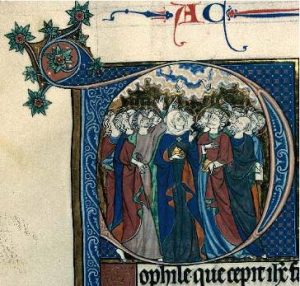 AC
ophile que cepit ihc fa